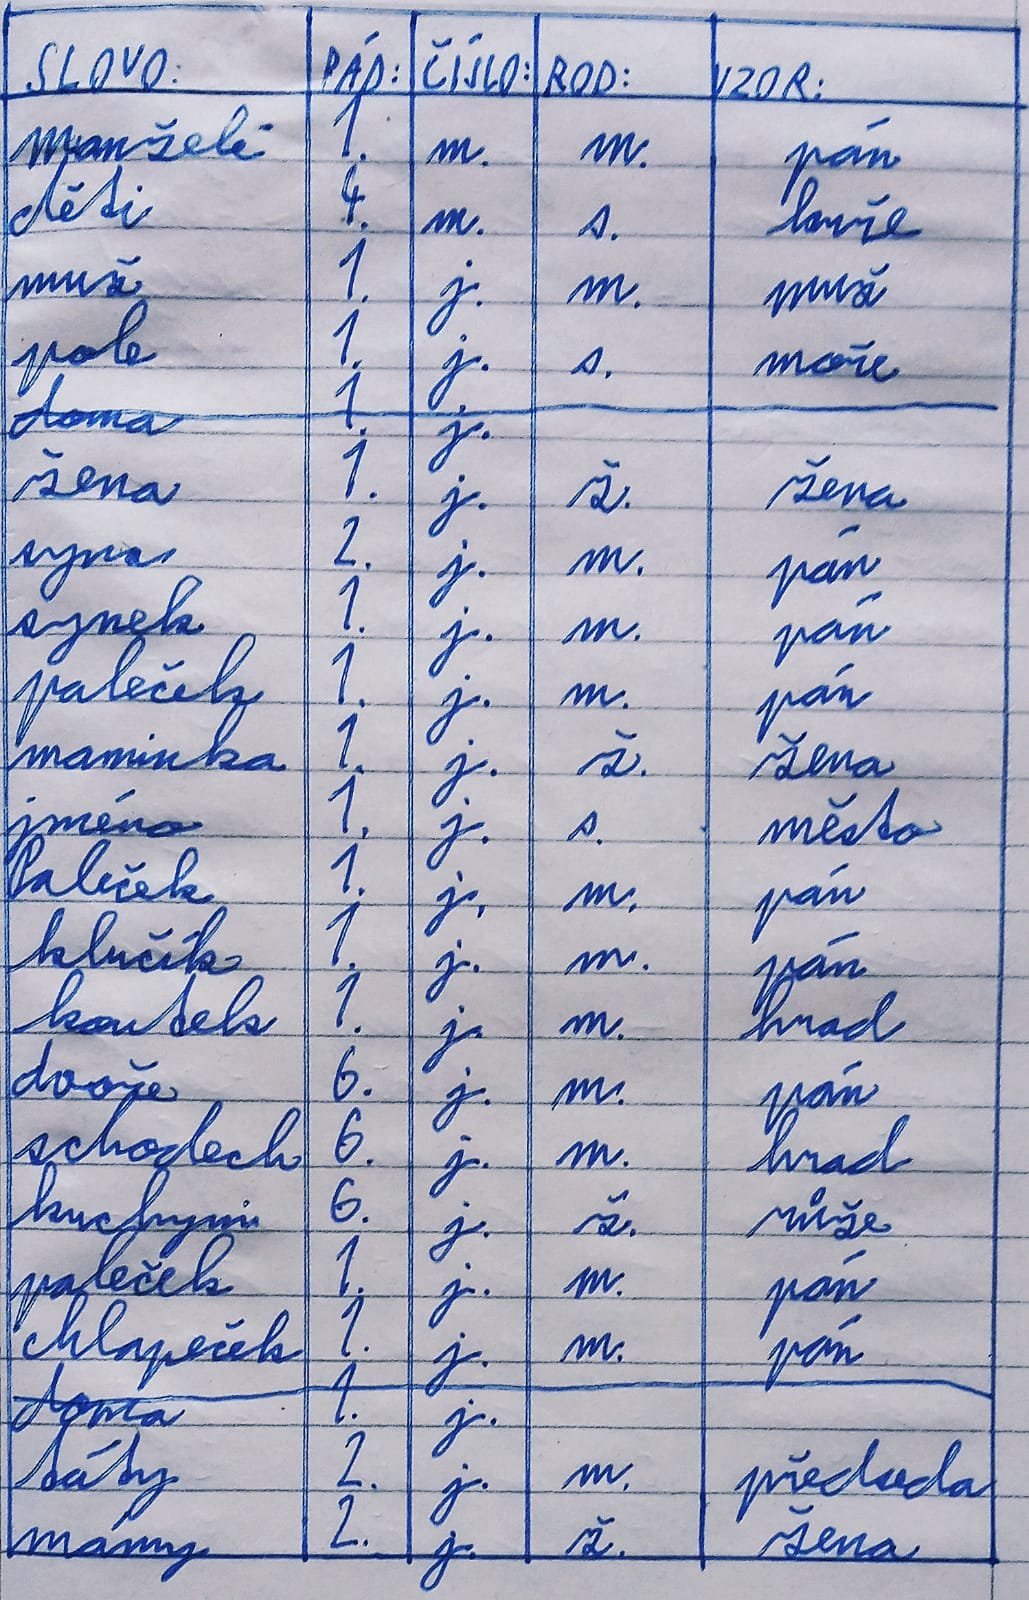 SLOVO: PÁD: ČÍSLO: ROD: VZOR:
manželé 1. m. m. pán
děti 4. m. s. kuře
muž 1. j. m. muž
pole 1. j. s. moře
doma 1. j.
žena 1. j. ž. žena
syna 2. j. m. pán
synek 1. j. m. pán
paleček 1. j. m. pán
maminka 1. j. ž. žena
jméno 1. j. s. město
Paleček 1. j. m. pán
klučík 1. j. m. pán
koutek 1. j. m. hrad
dvoře 6. j. m. pán
schodech 6. j. m. hrad
kuchyni 6. j. ž. růže
paleček 1. j. m. pán
chlapeček 1. j. m. pán
doma 1. j.
táty 2. j. m. předseda
mámy 2. j. ž. žena